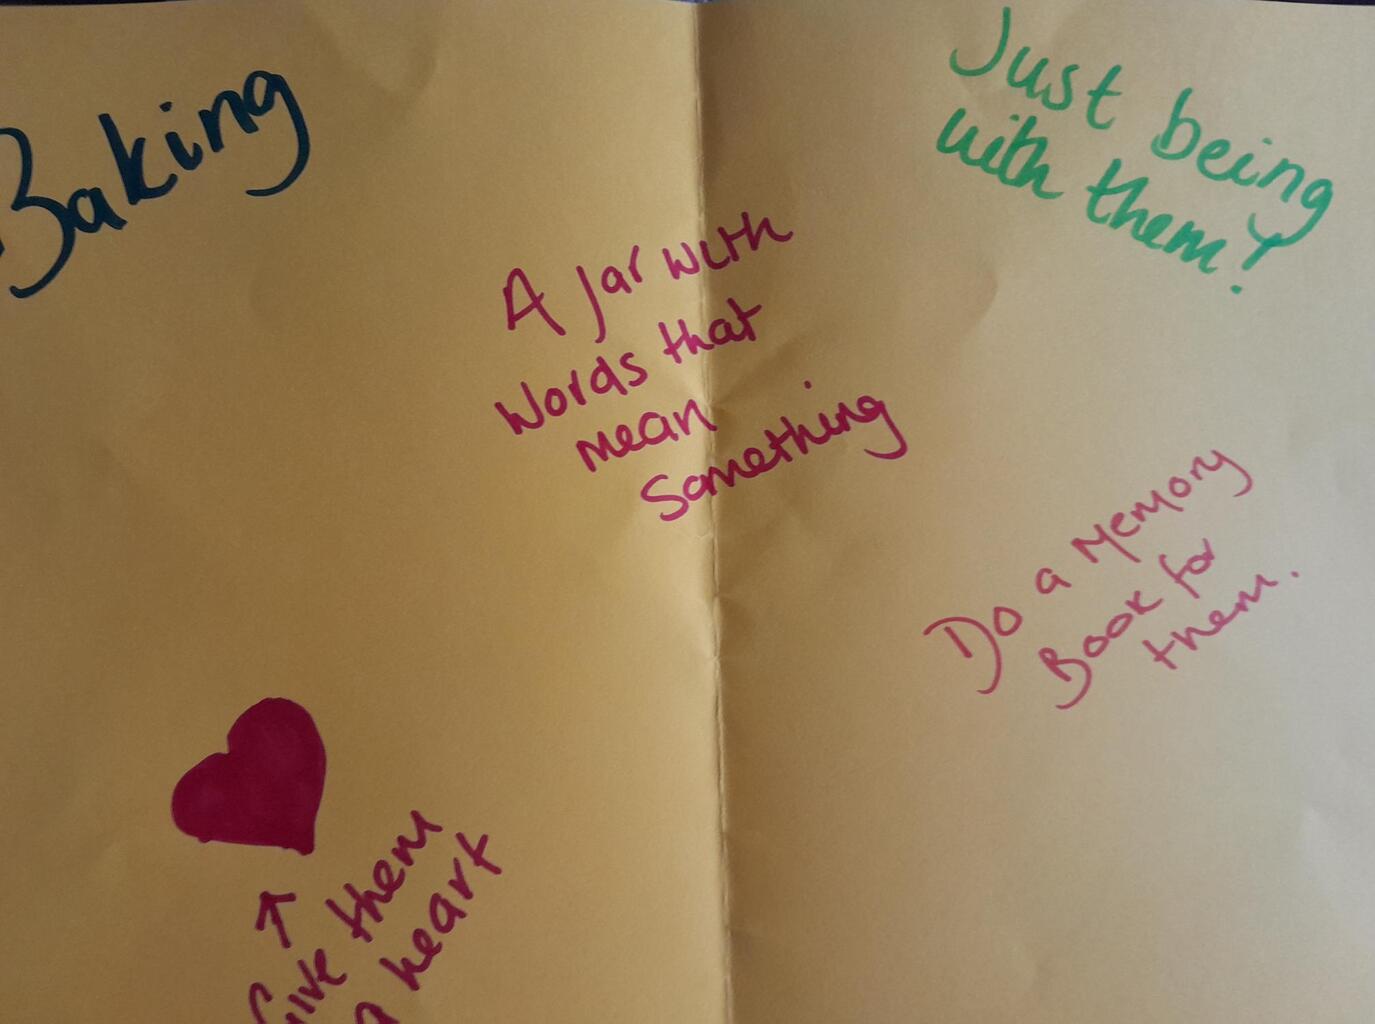 Baking
Just being
with them!
A jar with
words that
mean
something
Do a memory
Book for
them.
Give them
a heart